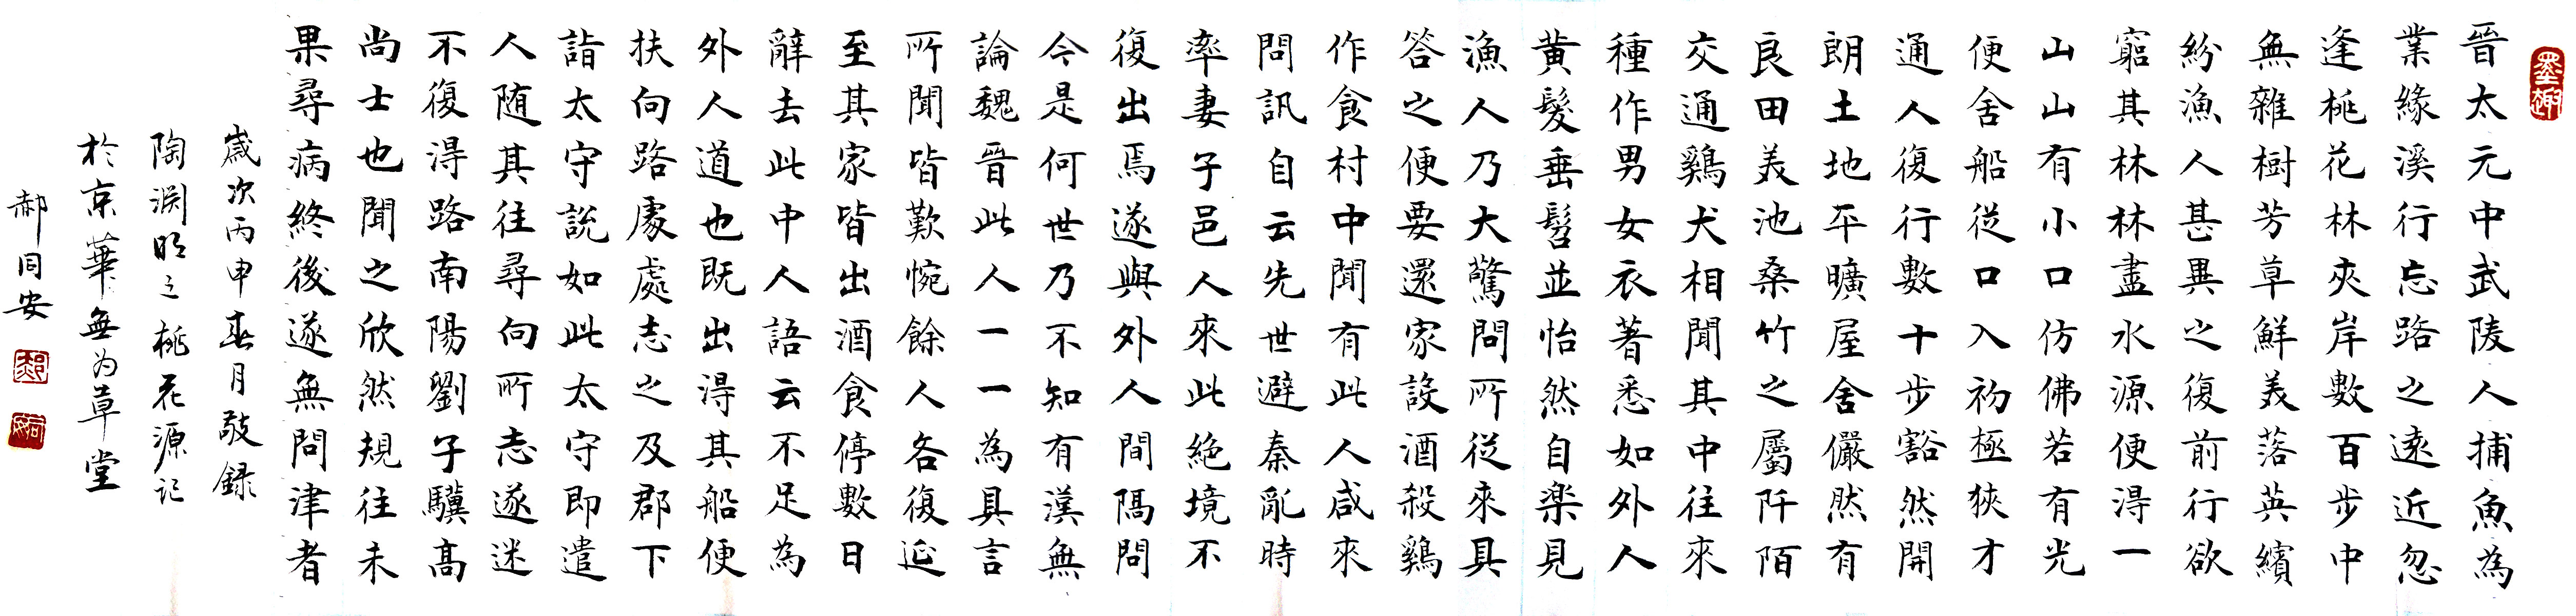 墨趣
晉太元中武陵人捕魚為
業緣溪行忘路之遠近忽
逢桃花林夾岸數百步中
無雜樹芳草鮮美落英繽
紛漁人甚異之復前行欲
窮其林林盡水源便得一
山山有小口仿佛若有光
便舍船從口入初極狹才
通人復行數十步豁然開
朗土地平曠屋舍儼然有
良田美池桑竹之屬阡陌
交通鷄犬相聞其中往來
種作男女衣著悉如外人
黃髮垂髫並怡然自樂見
漁人乃大驚問所從來具
答之便要還家設酒殺鷄
作食村中聞有此人咸來
問訊自云先世避秦亂時
率妻子邑人來此絕境不
復出焉遂與外人間隔問
今是何世乃不知有漢無
論魏晉此人一一為具言
所聞皆歎惋餘人各復延
至其家皆出酒食停數日
辭去此中人語云不足為
外人道也既出得其船便
扶向路處處志之及郡下
詣太守說如此太守即遣
人随其往尋向所志遂迷
不復得路南陽劉子驥高
尚士也聞之欣然規往未
果尋病終後遂無問津者
歲次丙申春月敬録
陶淵明之桃花源記
於京華無为草堂
郝同安